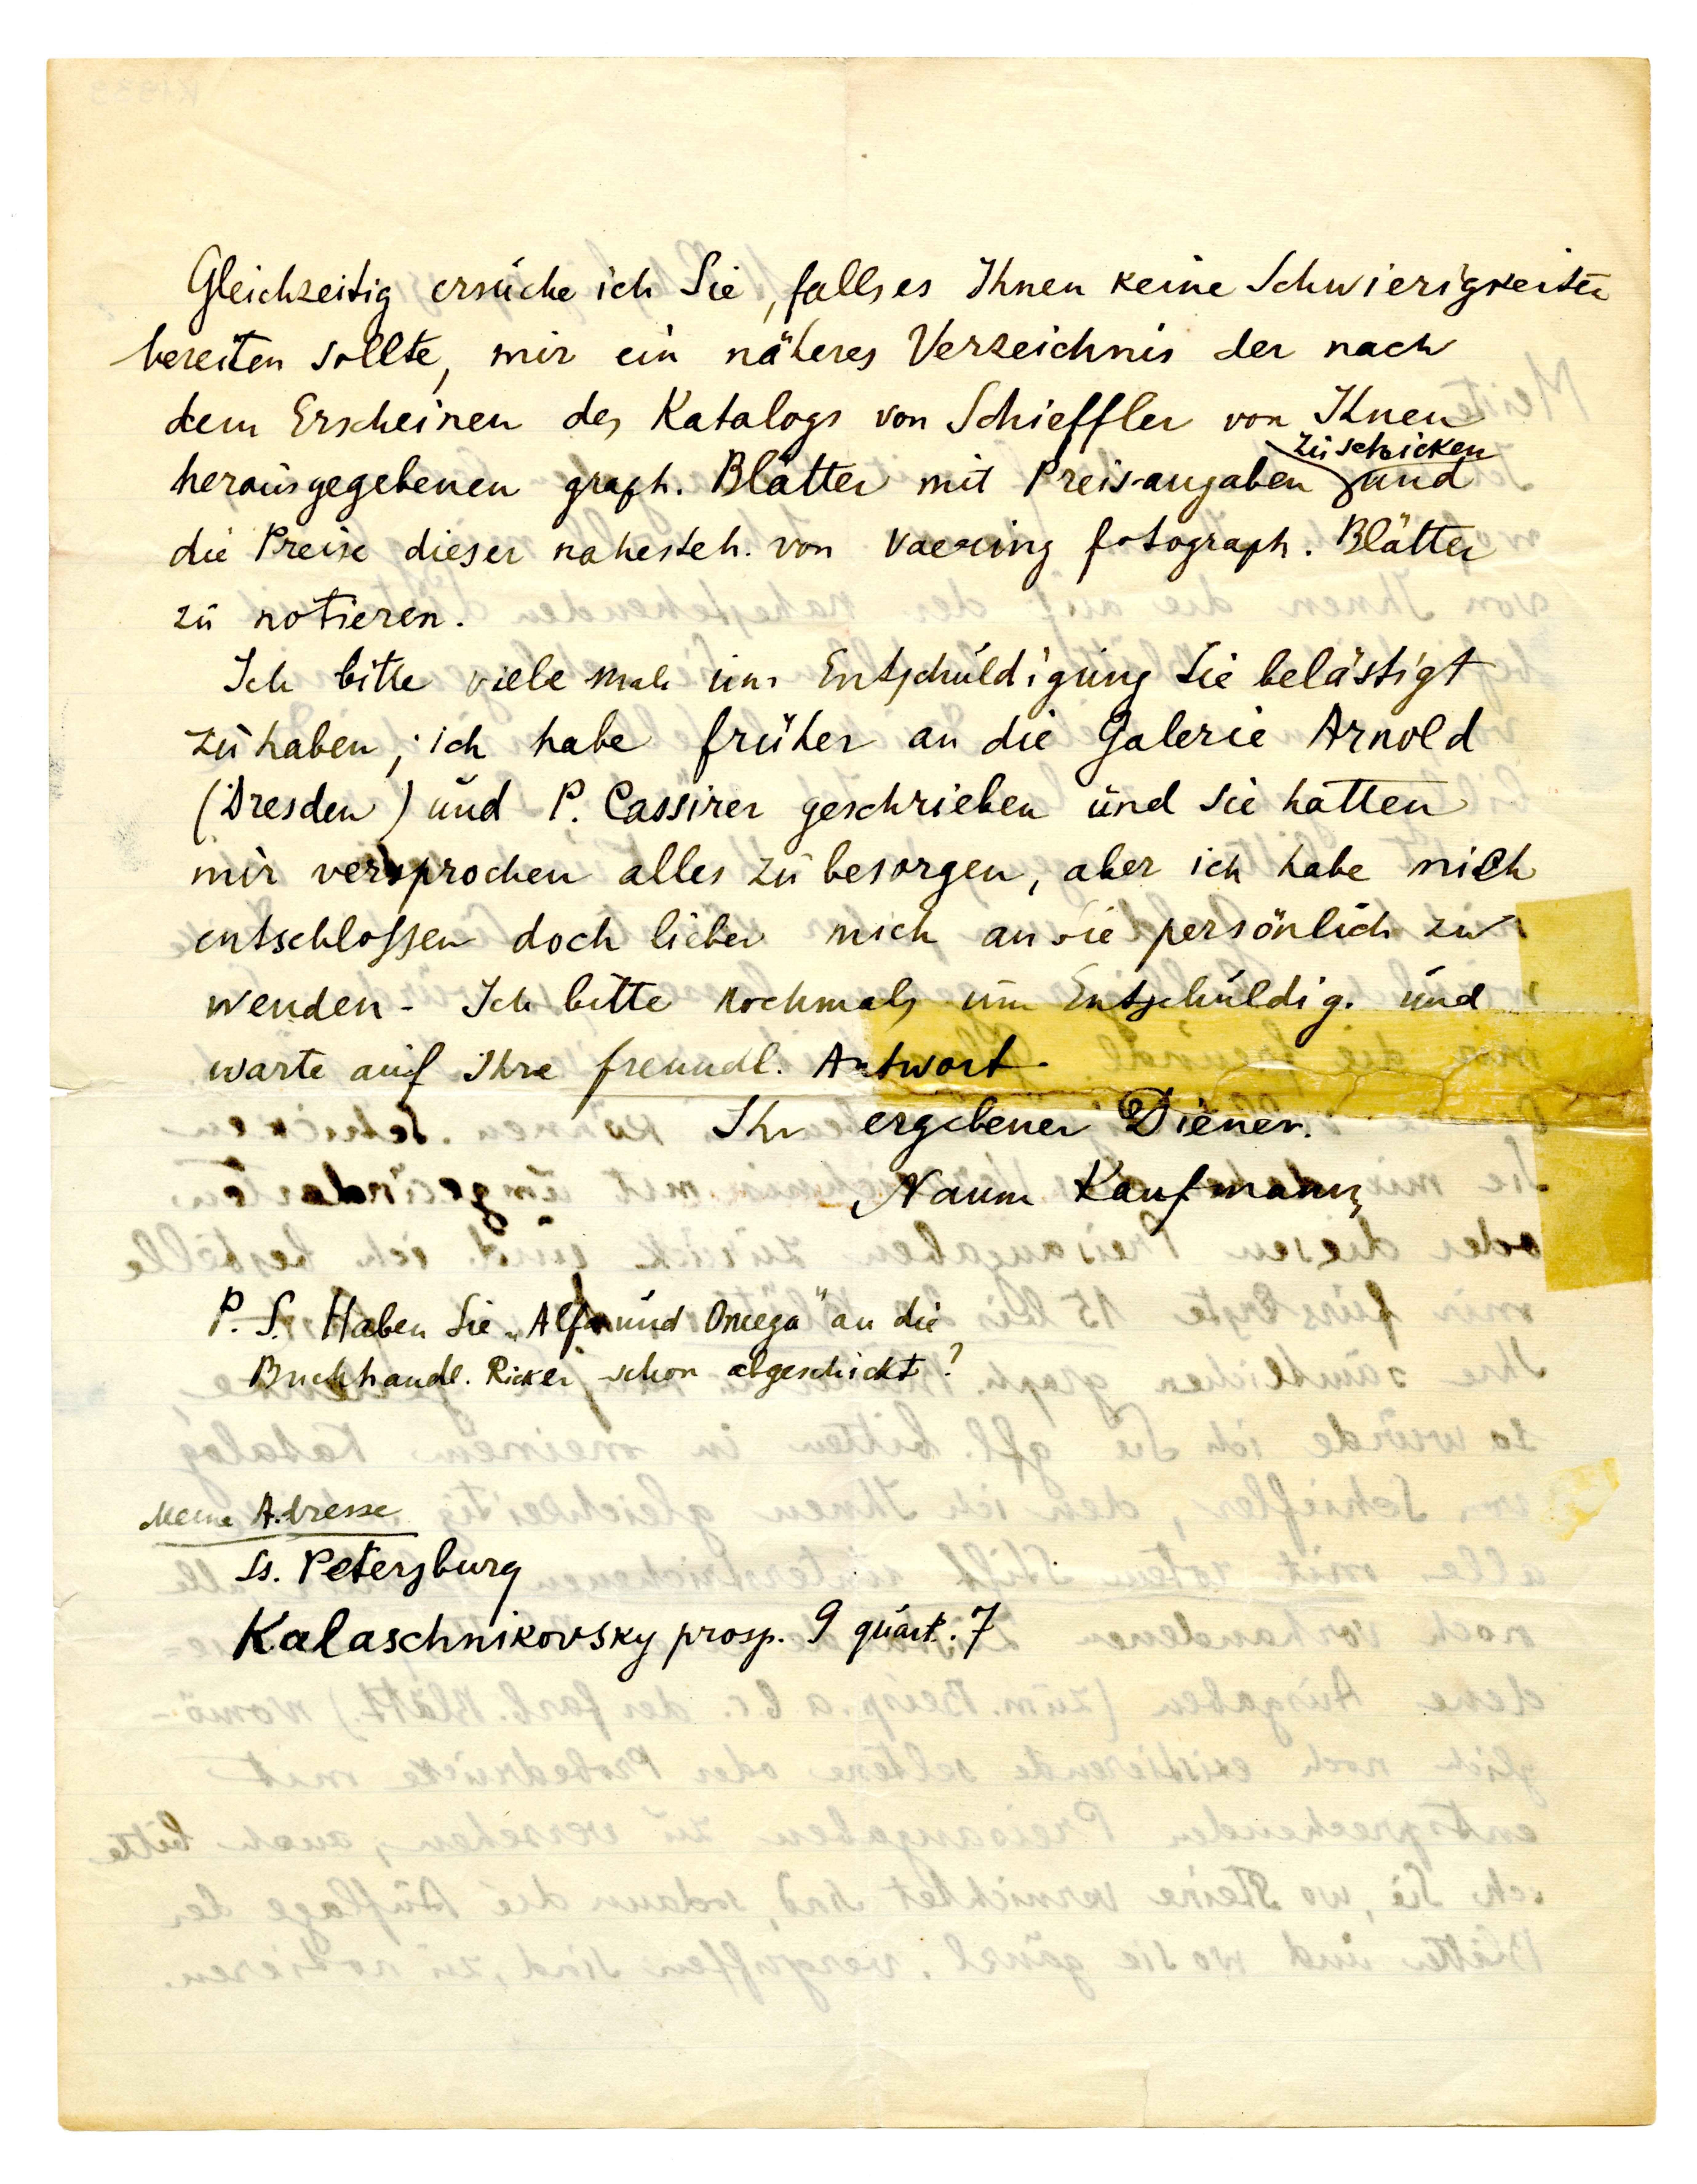 Gleichzeitig ersuche ich Sie, falls es Ihnen keine Schwierigkeiten
bereiten sollte, mir ein näheres Verzeichnis der nach
dem Erscheinen des Katalogs von Schieffler von Ihnen
zuschicken
herausgegebenen graph. Blätter mit Preisangaben und
die Preise dieser nahesteh. von Vaering fotograph. Blätter
zu notieren.
Ich bitte viele mals um Entschuldigung Sie belästigt
zu haben; ich habe früher an die Galerie Arnold
(Dresden) und P. Cassirer geschrieben und sie hatten
mir versprochen alles zu besorgen, aber ich habe mich
entschlossen doch lieber mich an Sie persönlich zu
wenden - Ich bitte nochmals um Entschuldig. und
warte auf Ihre freundl. Antwort.
Ihr ergebener Diener.
Naum Kaufmann
P. S. Haben Sie „Alfa und Omega" an die
Buchhandl. Ricker schon abgeschickt?
Meine Adresse
St. Petersburg
Kalaschnikovsky prosp. 9 quart. 7